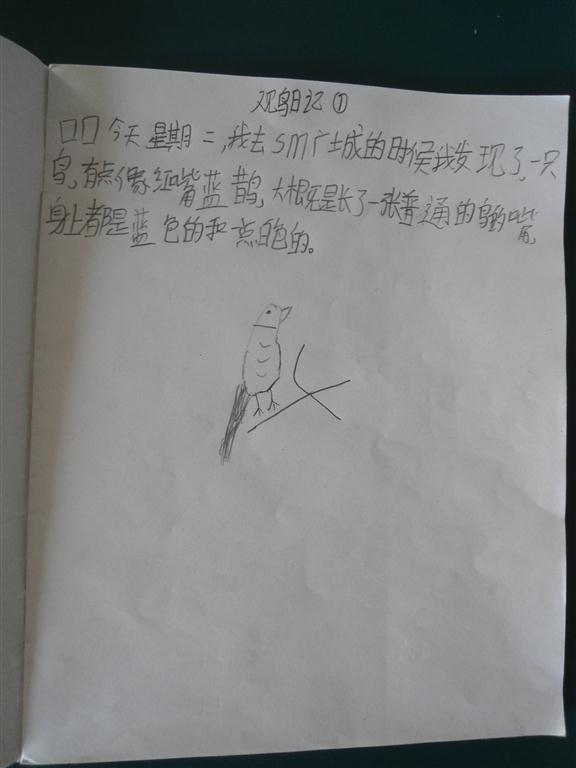 观鸟日记①
口口今天星期二,我去sm广土成的时候我发现了,一只
鸟,有点像红嘴蓝鹊,大根牙是长了一张普通的鸟的嘴,
身上都是蓝色的和点白色的。